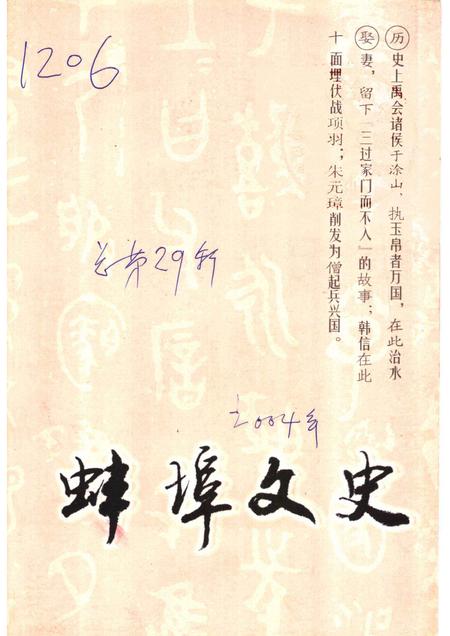 1206
历史上禹会诸侯于涂山、执玉帛者万国，在此治水
娶妻，留下“三过家门而不入”的故事；韩信在此
十面埋伏战项羽；朱元璋削发为僧起兵兴国。
总第29辑
2004年
蚌埠文史